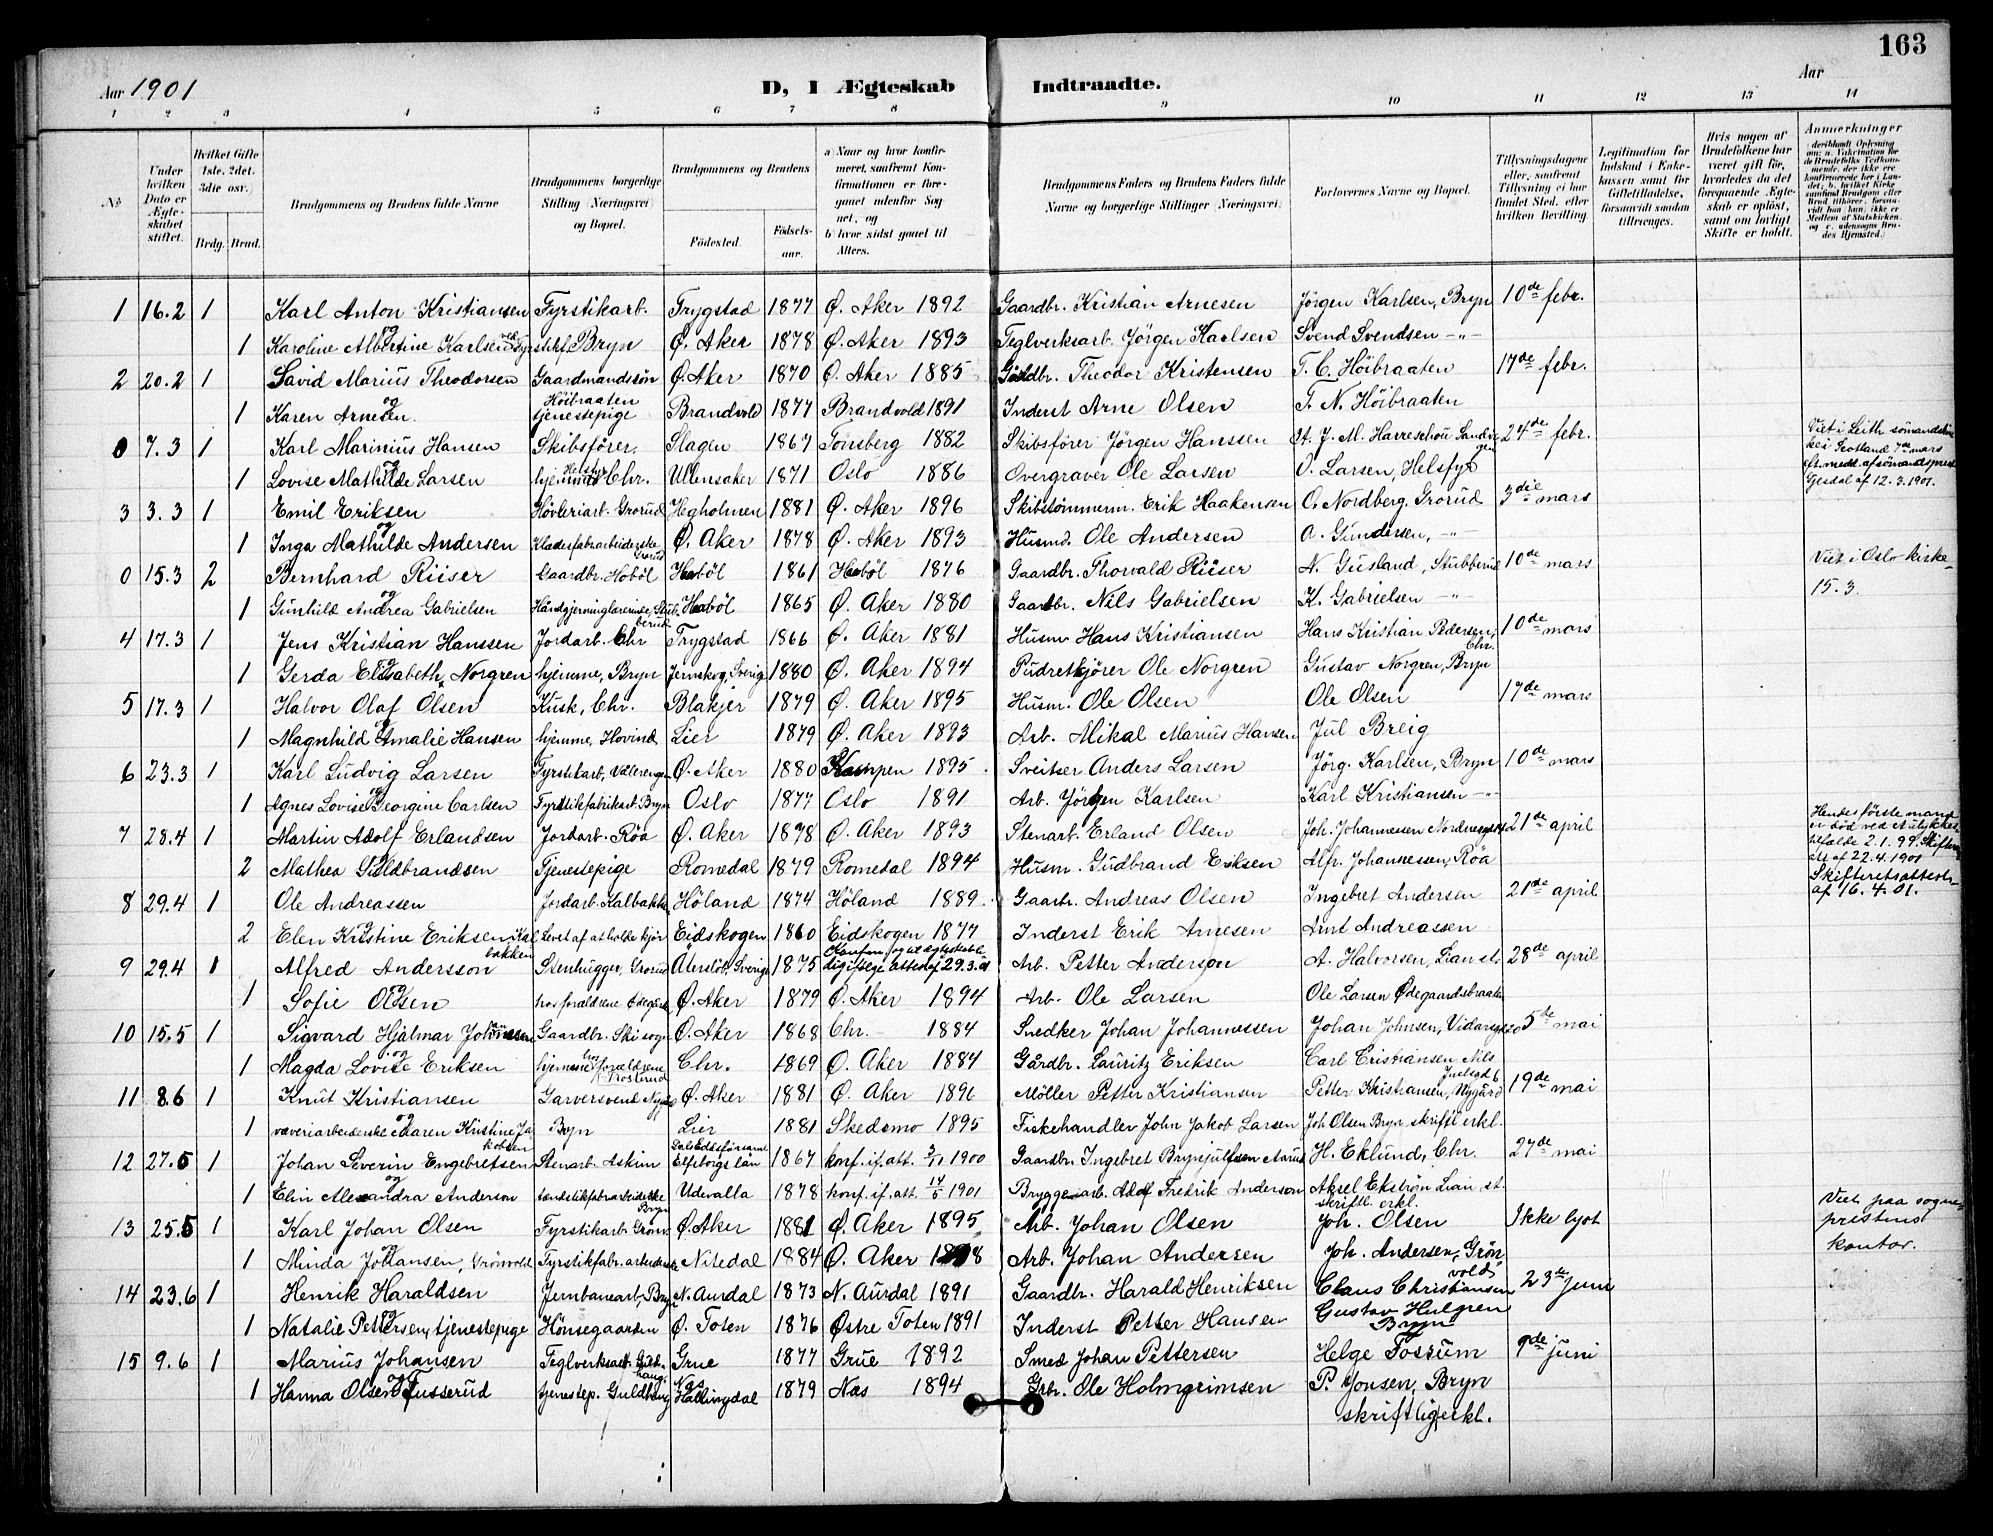 163
Aar 1901
D, I Ægteskab Indtraadte.
Aar
1 2 3 4 5 6 7 8 9 10 11 12 13 14
№ | Under hvilken Dato er Ægteskabet stiftet. | Hvilket Gifte 1ste. 2det. 3die osv.) Brdg. Brud. | Brudgommens og Brudens fulde Navne | Brudgommens borgerlige Stilling (Næringsvei) og Bopæl. | Brudgommens og Brudens Fødested. Fødselsaar. | a) Naar og hvor konfirmeret, saafremt Konfirmationen er foregaaet udenfor Sognet, og b) hvor sidst gaaet til Alters. | Brudgommens Faders og Brudens Faders fulde Navne og borgerlige Stillinger (Næringsvei) | Forlovernes Navne og Bopæl. | Tillysningsdagene eller, saafremt Tillysning ei har fundet Sted, efter hvilken Bevilling. | Legitimation for Indskud i Enkekassen samt for Giftetilladelse, forsaavidt saadan tiltrænges. | Hvis nogen af Brudefolkene har været gift før, hvorledes da det foregaaende Ægteskab er opløst, samt om lovligt Skifte er holdt. | Anmerkninger
1 16.2 1 Karl Anton Kristiansen Fyrstikarb. Trygstad 1877 Ø. Aker 1892 Gaardbr. Kristian Arnesen Jörgen Karlsen, Bryn 10de febr.
og
1 Karoline Albertine Karlsen Bryn Ø. Aker 1878 Ø. Aker 1893 Teglverksarb. Jörgen Karlsen Svend Svendsen -"-
2 20.2 1 David Marius Theodorsen Gaardmandssön Ø. Aker 1870 Ø. Aker 1885 Gaardbr. Theodor Kristensen T. C. Höibraaten 17de febr.
og Höibraaten
1 Karen Arnesen. tjenestepige Brandvold 1877 Brandvold 1891 Inderst Arne Olsen T. N. Höibraaten
0 7.3 1 Karl Marinius Hansen Skibsförer. Slagen 1867 Tönsberg 1882 Skibsförer Jörgen Hanssen St. J. M. Harreschou 24de febr. Viet i Leith
og
1 Lovise Mathilde Larsen hjemme Chr. Ullensaker 1871 Oslo 1886 Overgraver Ole Larsen O. Larsen, Helsfyr Scotland 7de mars
Gjesdal af 12.3.1901.
3 3.3 1 Emil Eriksen Hövleriarb. Grorud Hegholmen 1881 Ø. Aker 1896 Skibstömmerm. Erik Haakensen O. Nordberg, Grorud 3die mars
og
1 Inga Mathilde Andersen Grorud Ø. Aker 1878 Ø. Aker 1893 Husmd. Ole Andersen A. Gundersen, -"-
0 15.3 2 Bernhard Riiser Gaardbr. Hoböl Hoböl 1861 Hoböl 1876 Gaardbr. Thorvald Riiser N. Gusland, Stubberud 10de mars Viet i Oslo kirke
og
1 Gunhild Andrea Gabrielsen Haandgjerningslærerinde, Stubberud Hoböl 1865 Ø. Aker 1880 Gaardbr. Nils Gabrielsen K. Gabrielsen -"- 15.3.
4 17.3 1 Jens Kristian Hanssen Jordarb. Chr Trygstad 1866 Ø. Aker 1881 Husm. Hans Kristiansen Hans Kristian Pedersen, Chr. 10de mars
og
1 Gerda Elisabeth Norgren hjemme, Bryn Jernskog, Sverige 1880 Ø. Aker 1894 Pudretkjörer Ole Norgren Gustav Norgren, Bryn
5 17.3 1 Halvor Olaf Olsen Kusk, Chr. Blakjer 1879 Ø. Aker 1895 Husm. Ole Olsen Ole Olsen 17de mars
og
1 Magnhild Amalie Hansen hjemme, Hovind Lier 1879 Ø. Aker 1893 Arb. Mikal Marius Hansen Jul Breig
6 23.3 1 Karl Ludvig Larsen Fyrstikarb, Vålerengen Ø. Aker 1880 Kampen 1895 Sveitser Anders Larsen Jörg. Karlsen, Bryn 10de mars
og
1 Agnes Lovise Georgine Carlsen Fyrstikfabrikarb. Bryn Oslo 1877 Oslo 1891 Arb. Jörgen Karlsen Karl Kristiansen -"-
7 28.4 1 Martin Adolf Erlandsen Jordarb. Röa Ø. Aker 1878 Ø. Aker 1893 Stenarb. Erland Olsen Joh. Johannessen 21de april Hendes förste mand er död ved Ulykkestilfælde 2.1.99. af 22.4.1901
2 Mathea Guldbrandsen Tjenestepige Romedal 1879 Romedal 1894 Husm. Gudbrand Eriksen Alfr. Johannessen, Röa
8 29.4 1 Ole Andreassen Jordarb. Kalbakken Höland 1874 Höland 1889 Gaardbr. Andreas Olsen Ingebret Andersen 21de april Skifteretsattest af 16.4.01.
2 Elen Kristine Eriksen Kalbakken Levet af at holde kjör Eidskogen 1860 Eidskogen 1877 Inderst Erik Arnesen Arnt Andreassen
9 29.4 1 Alfred Andersson Stenhugger, Grorud Sverige 1875 Attest af 29.3.01 Arb. Petter Anderson A. Halvorsen, Lian st. 28de april
og
1 Sofie Olsen hos forældrene Ø. Aker 1879 Ø. Aker 1894 Arb. Ole Larsen Ole Larsen Ødegaardsbraaten
10 15.5 1 Sigvard Hjalmar Johannessen Gaardbr. Ski sogn Ø. Aker 1868 Chr. 1884 Snedker Johan Johannessen Johan Johnsen, Vidarsgd 5de mai
og
1 Magda Lovise Eriksen hjemme hos forældrene Chr. 1869 Ø. Aker 1884 Gårdbr. Lauritz Eriksen Carl Cristiansen Nils Juelsgd 6
11 8.6 1 Knut Kristiansen Garversvend Ø. Aker 1881 Ø. Aker 1896 Möller Petter Kristiansen Petter Kristiansen, Nygård 19de mai
og
1 væveriarbeiderske Maren Kristine Jakobsen Bryn Lier 1881 Skedsmo 1895 Fiskehandler John Jakob Larsen Joh. Olsen Bryn skriftl erkl.
12 27.5 1 Johan Severin Engebretsen Stenarb. Askim Elfsborgs län 1867 konf. if. att. 3/11 1900 Gaardbr. Ingebret Brynjulfsen H. Eklund, Chr. 27de mai
og
1 Elin Alexandra Anderson Bryn Udevalla 1878 konf. if. att. 14/5 1901 Bryggeriarb. Adolf Fredrik Anderson Aksel Ekströn Lian st.
skriftl. erkl.
13 25.5 1 Karl Johan Olsen Fyrstikarb. Grönv. Ø. Aker 1881 Ø. Aker 1895 Arb. Johan Olsen Joh. Olsen Ikke lyst Viet paa sogneprestens kontor.
1 Minda Johansen, Grönvold Fyrstikfabr.arbeiderske Nitedal 1884 Ø. Aker Arb. Johan Andersen Joh. Andersen, Grönvold
14 23.6 1 Henrik Haraldsen Jernbanearb, Bryn N. Aurdal 1873 N. Aurdal 1891 Gaardbr. Harald Henriksen Claus Christiansen 23de juni
og
1 Natalie Pettersen, tjenestepige Hönsegaarden Ø. Toten 1876 Østre Toten 1891 Inderst Petter Hansen Gustav Hulgren Bryn
15 9.6 1 Marius Johansen Teglverksarb Guldhaug. Grue 1877 Grue 1892 Smed Johan Pettersen Helge Fossum 9de juni
og
1 Hanna Olsen Tusserud tjenestep. Guldhaug Nes Hallingdal 1879 Næs 1894 Grbr. Ole Holmgrimsen P. Jonsen, Bryn
skriftlig erkl.